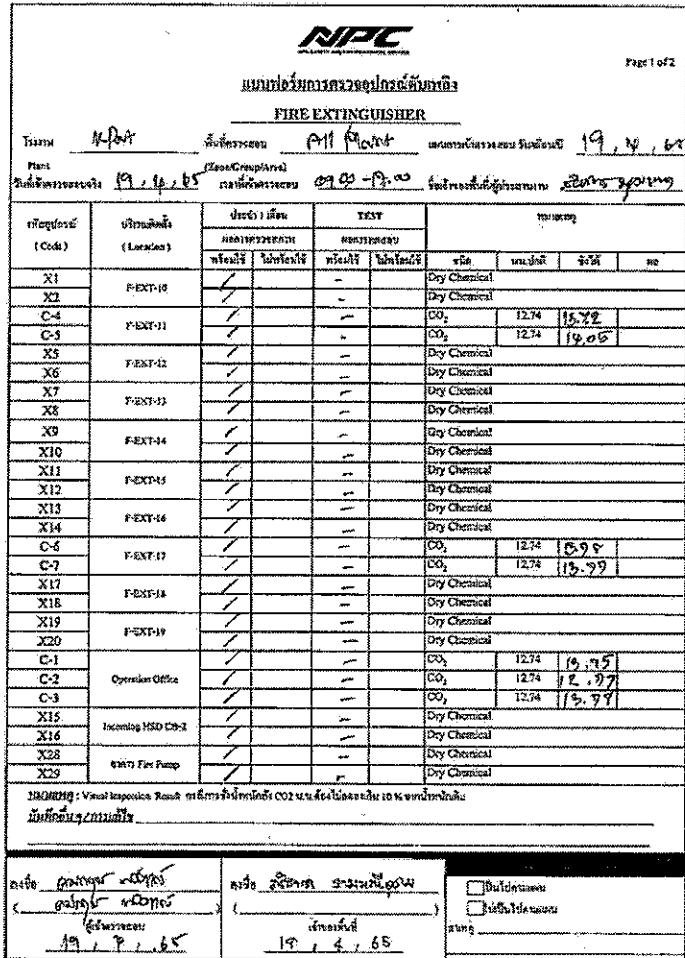 NPC
Page 1 of 2
แบบฟอร์มการตรวจอุปกรณ์ดับเพลิง
FIRE EXTINGUISHER
โรงงาน พื้นที่ตรวจสอบ All Plant แผนการเข้าตรวจสอบ วันเดือนปี 19, 4, 65
Plant (Zone/Group/Area)
วันที่เข้าตรวจสอบจริง 19, 4, 65 เวลาที่เข้าตรวจสอบ 09.00 -17.00
รหัสอุปกรณ์ บริเวณติดตั้ง ประจำ 1 เดือน TEST หมายเหตุ
(Code) (Location) ผลการตรวจสภาพ ผลการทดสอบ
พร้อมใช้ ไม่พร้อมใช้ พร้อมใช้ ไม่พร้อมใช้ ชนิด นน.ปกติ ชั่งได้ ผล
X1 F-EXT-10 / - Dry Chemical
X2 / - Dry Chemical
C-4 F-EXT-11 / - CO₂ 12.74
C-5 / - CO₂ 12.74 14.05
X5 F-EXT-12 / - Dry Chemical
X6 / - Dry Chemical
X7 F-EXT-13 / - Dry Chemical
X8 / - Dry Chemical
X9 F-EXT-14 / - Dry Chemical
X10 / - Dry Chemical
X11 F-EXT-15 / - Dry Chemical
X12 / - Dry Chemical
X13 F-EXT-16 / - Dry Chemical
X14 / - Dry Chemical
C-6 F-EXT-17 / - CO₂ 12.74
C-7 / - CO₂ 12.74 13.99
X17 F-EXT-18 / - Dry Chemical
X18 / - Dry Chemical
X19 F-EXT-19 / - Dry Chemical
X20 / - Dry Chemical
C-1 Operation Office / - CO₂ 12.74
C-2 / - CO₂ 12.74
C-3 / - CO₂ 12.74
X15 Incoming HSD CB-2 / - Dry Chemical
X16 / - Dry Chemical
X28 อาคาร Fire Pump / - Dry Chemical
X29 / - Dry Chemical
หมายเหตุ : Visual Inspection Result กรณีการชั่งน้ำหนักถัง CO2 น.น.ต้องไม่ลดลงเกิน 10 % จากน้ำหนักเดิม
บันทึกอื่น ๆ / การแก้ไข
ลงชื่อ ลงชื่อ
ผู้เข้าตรวจสอบ เจ้าของพื้นที่
19, 4, 65 19, 4, 65
เป็นไปตามแผน
ไม่เป็นไปตามแผน
สาเหตุ